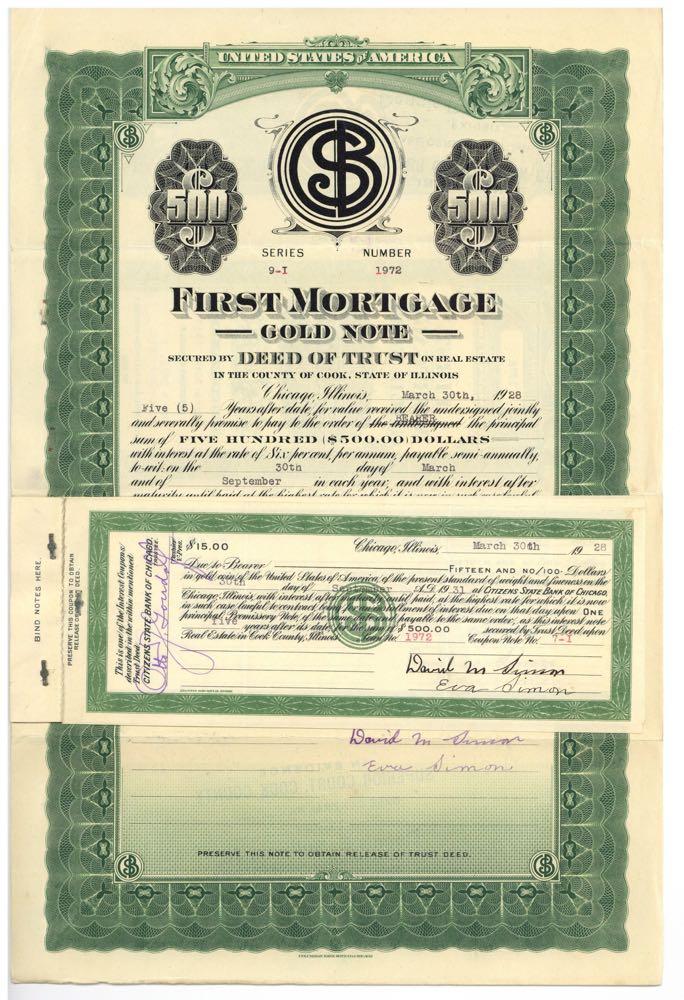 UNITED STATES OF AMERICA
$B
500 500
SERIES NUMBER
9-I 1972
FIRST MORTGAGE
GOLD NOTE
SECURED BY DEED OF TRUST ON REAL ESTATE
IN THE COUNTY OF COOK, STATE OF ILLINOIS
Chicago, Illinois, March 30th, 1928
Five (5) Years after date, for value received, the undersigned jointly
and severally promise to pay to the order of the undersigned BEARER the principal
sum of FIVE HUNDRED ($500.00) DOLLARS
with interest at the rate of Six per cent, per annum, payable semi-annually,
to-wit: on the 30th day of March
and of September in each year, and with interest after
maturity until paid at the highest rate for which it is now in such
BIND NOTES HERE.
PRESERVE THIS COUPON TO OBTAIN
RELEASE OF DEED.
This is one of the Interest Coupons
described in the within mentioned
Trust Deed.
CITIZENS STATE BANK OF CHICAGO,
TRUSTEE.
$15.00 Chicago, Illinois, March 30th 1928
Due to Bearer FIFTEEN AND NO/100 Dollars
in gold coin of the United States of America, of the present standard of weight and fineness on the
30th day of September A.D. 1931 at CITIZENS STATE BANK OF CHICAGO,
Chicago, Illinois, with interest after maturity until paid, at the highest rate for which it is now
in such case lawful to contract, being for an installment of interest due on that day upon ONE
principal Promissory Note, of the same date and payable to the same order, as this interest note
five years after date for the sum of $500.00 secured by Trust Deed upon
Real Estate in Cook County, Illinois. Loan No. 1972 Coupon Note No. 7-I
David M Simon
Eva Simon
David M Simon
Eva Simon
PRESERVE THIS NOTE TO OBTAIN RELEASE OF TRUST DEED.